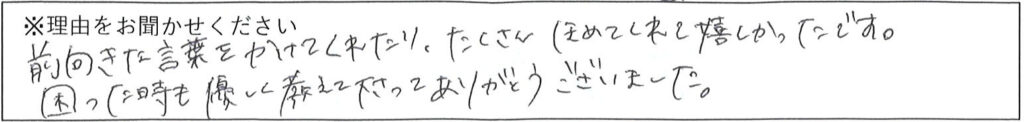 ※理由をお聞かせください
前向きな言葉をかけてくれたり、たくさんほめてくれて嬉しかったです。
困った時も優しく教えて下さってありがとうございました。